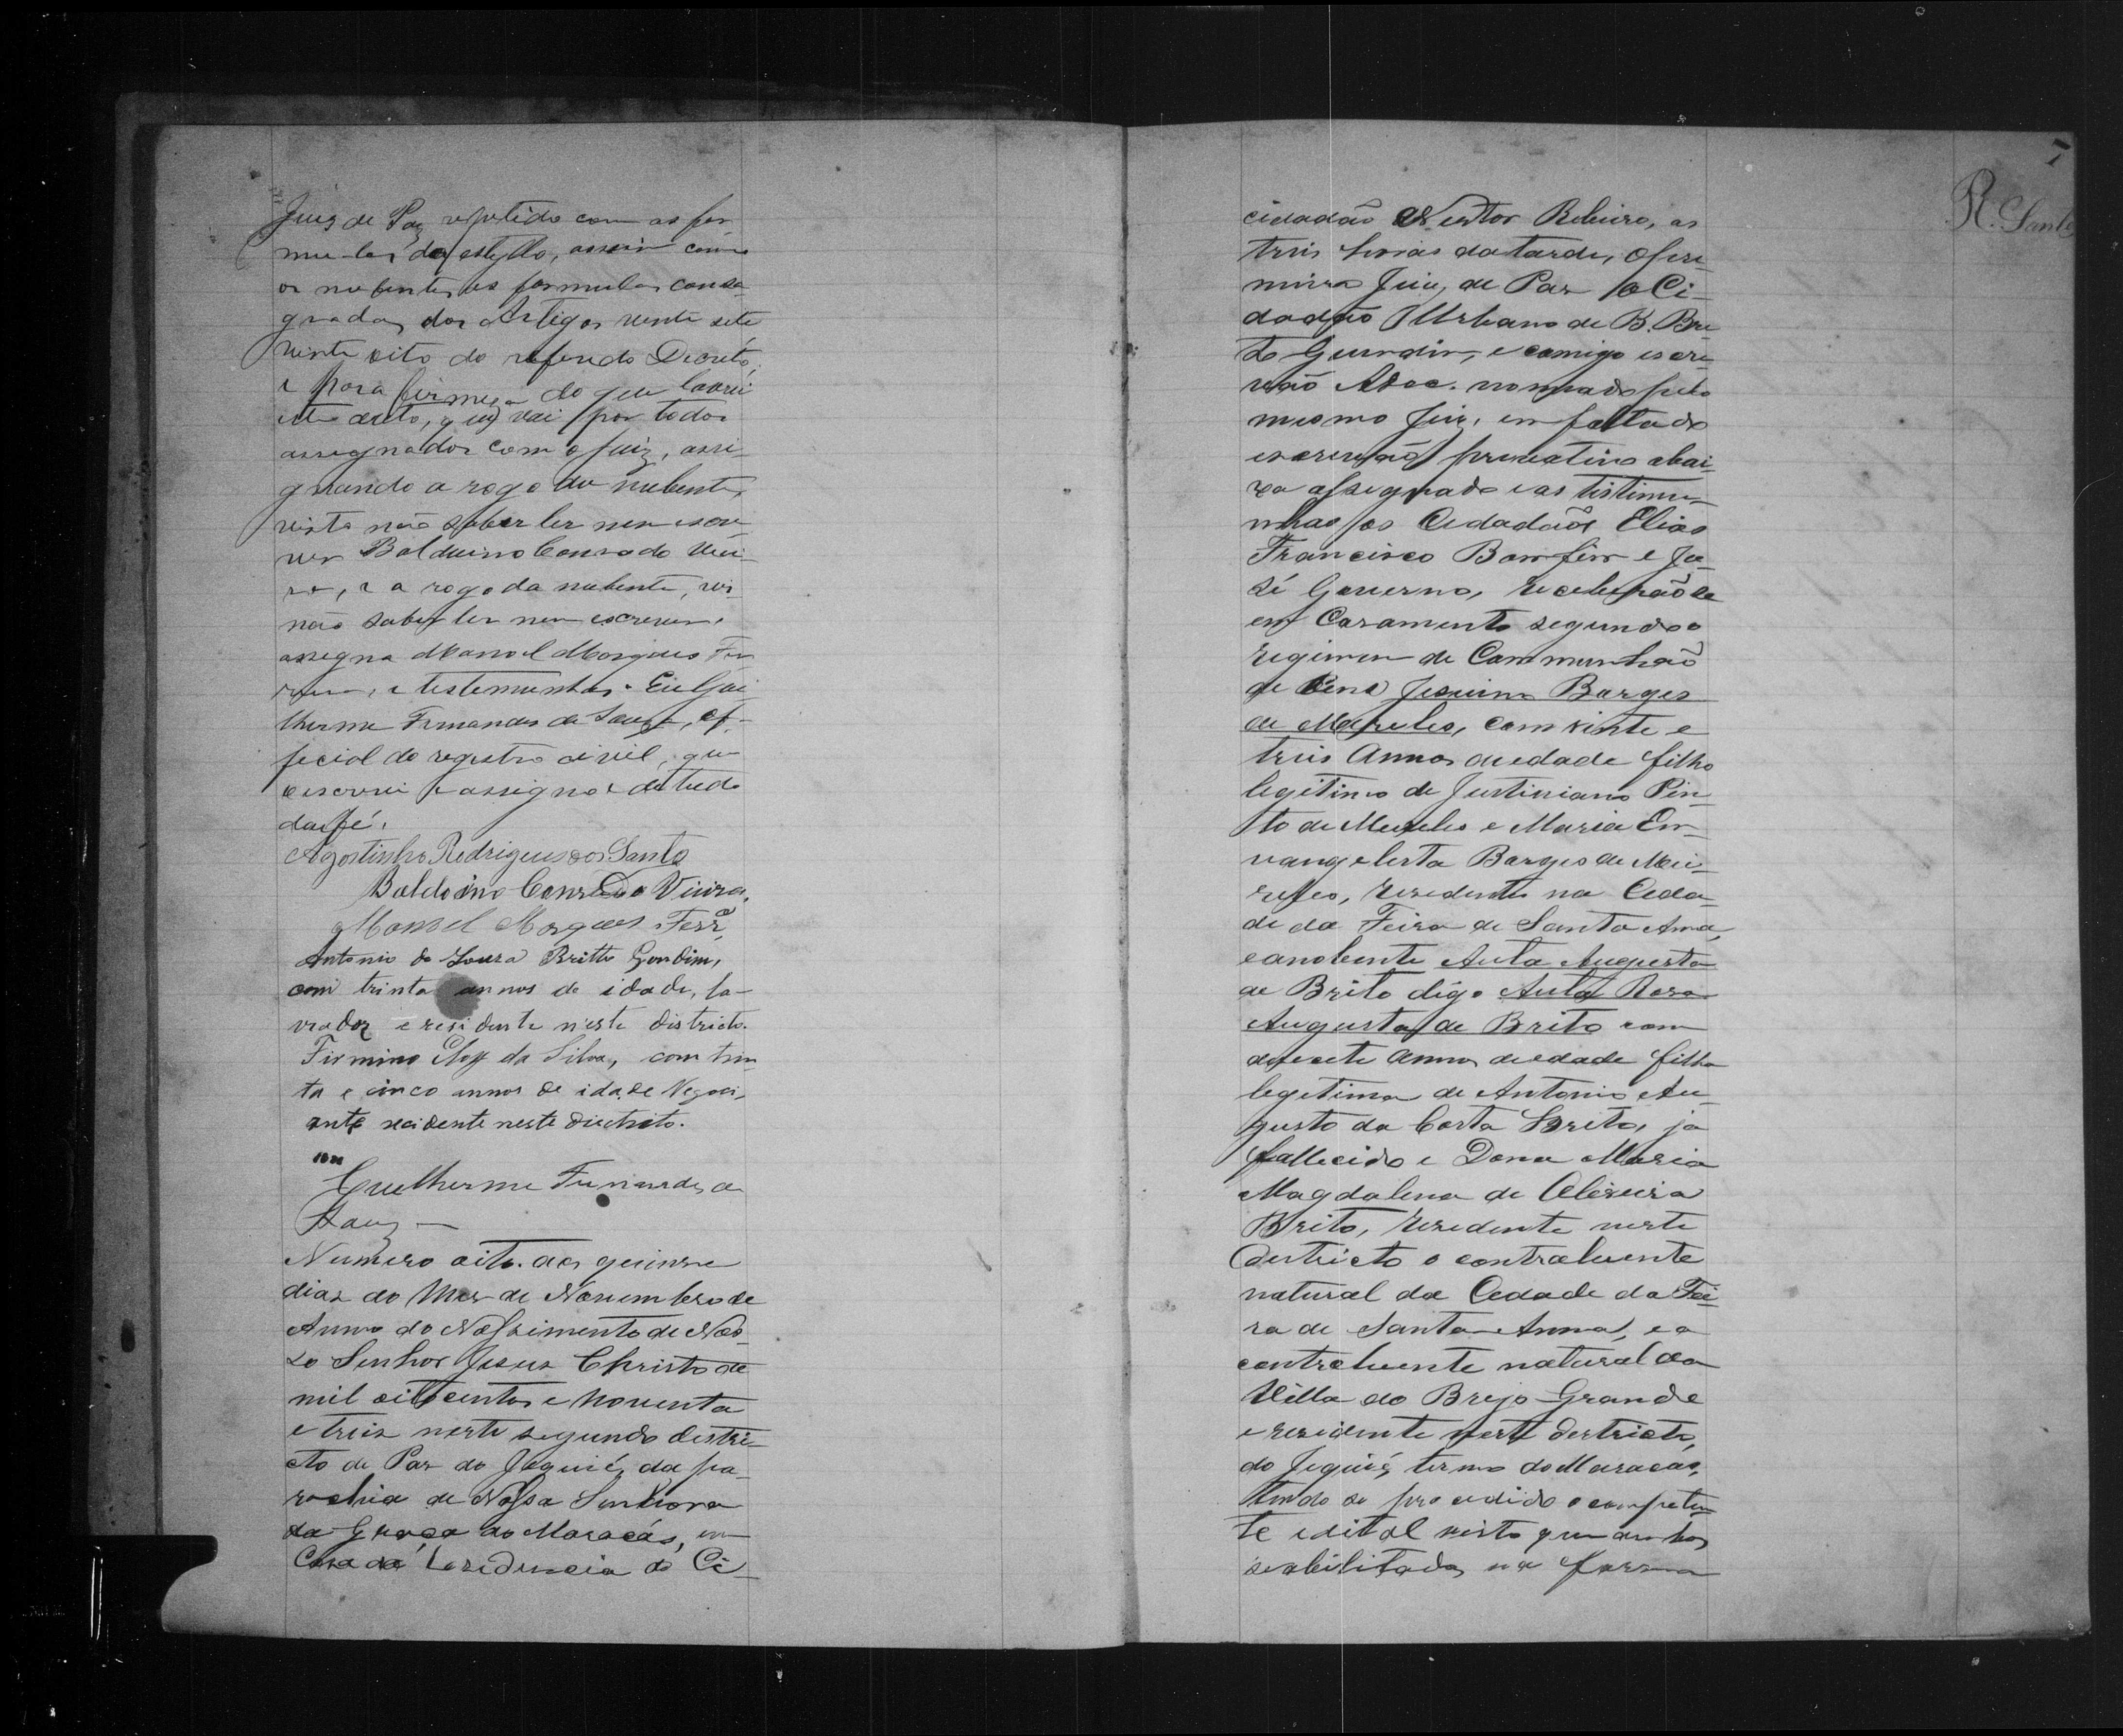 Juiz de Paz repetido com as for
mulas do estyllo, assim como
os nubentes as formulas consa-
gradas dos Artigos vente sete
vinte oito do referido Decreto,
e para firmeza do que lavrei
este acto, que vai por todos
assegnados com o juiz, assi-
gnando a rogo do nubente,
visto não saber ler nem escre
ver Balduino Conrado Viei-
ra, e a rogo da nubente, por
não saber ler nem escrever,
assegna Manoel Marques Fer
reira, e testemunhas. Eu Gui
lherme Fernandes de Souza, of-
ficial do registro civil, que
escrevi e assigno e de tudo
dou fé.
Agostinho Rodrigues dos Santo
Baldoino Conrado Vieira.
Manoel Marques Ferrª
Antonio de Souza Britto Gondim,
com trinta annos de idade, la-
vrador e residente n'este districto.
Firmino Eloy da Silva, com trin
ta e cinco annos de idade Negoci,
ante recidente neste districto.
Guilherme Fernandes de
Souz
Numero oito. aos quinze
dias do Mes de Novembro de
Anno do Nassimento de Nos
so Senhor Jesus Christo de
mil oitocentos e Noventa
e treis neste segundo destri-
cto de Paz do Jequié, da pa-
rochia de Nossa Senhora
da Graça do Maracás, em
Casa da resedencia do Ci-
7
R. Santo
cidadão Nestor Ribeiro, as
treis horas da tarde, o pri
meiro Juiz de Paz o Ci-
dadão Urbano de B. Bri
to Gundin, e comigo escri
vão Adoc. nomeado pelo
mesmo Juiz, em falta do
escrivão privativo abai-
xo assegnado e as testimu-
nhas os Cidadãos Elias
Francisco Bomfim e Jo-
sé Governo, receberão se
em Casamento segundo o
regimem de Communhão
de Bens Jesuino Borges
de Meireles, com vinte e
treis Annos de edade filho
legitimo de Justiniano Pin-
to de Meireles e Maria En-
vangelista Borges de Mei-
reles, residente na Cida-
de da Feira de Santa Anna,
e anobente Auta Augusta
de Brito digo Auta Rosa
Augusta de Brito com
desecete annos de edade filha
legetima de Antonio Au-
gusto da Costa Brito, já
fallecido e Dona Maria
Magdalena de Oliveira
Brito, resedente neste
destricto o contraluente
natural da Cedade da Fei-
ra de Santa Anna, e a
contraluente natural da
Villa do Brejo Grande
e residente neste destricto,
do Jequié, termo do Maracás,
tendo se procedido o competen-
te edital visto que ambos
seabilitados na forma